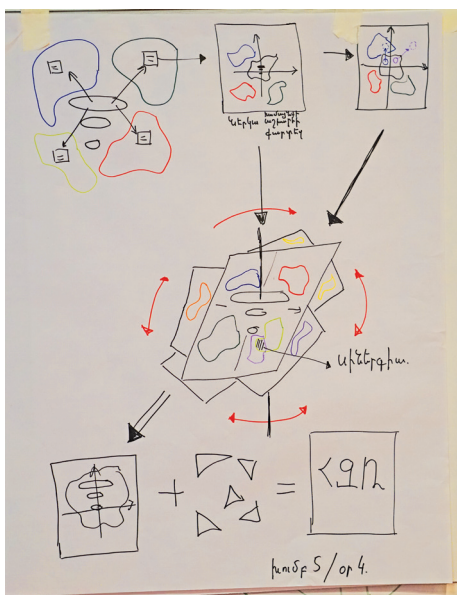 Ներկա
աշխարհի
քարտեզ
սիներգիա.
խումբ 5/օր 4.